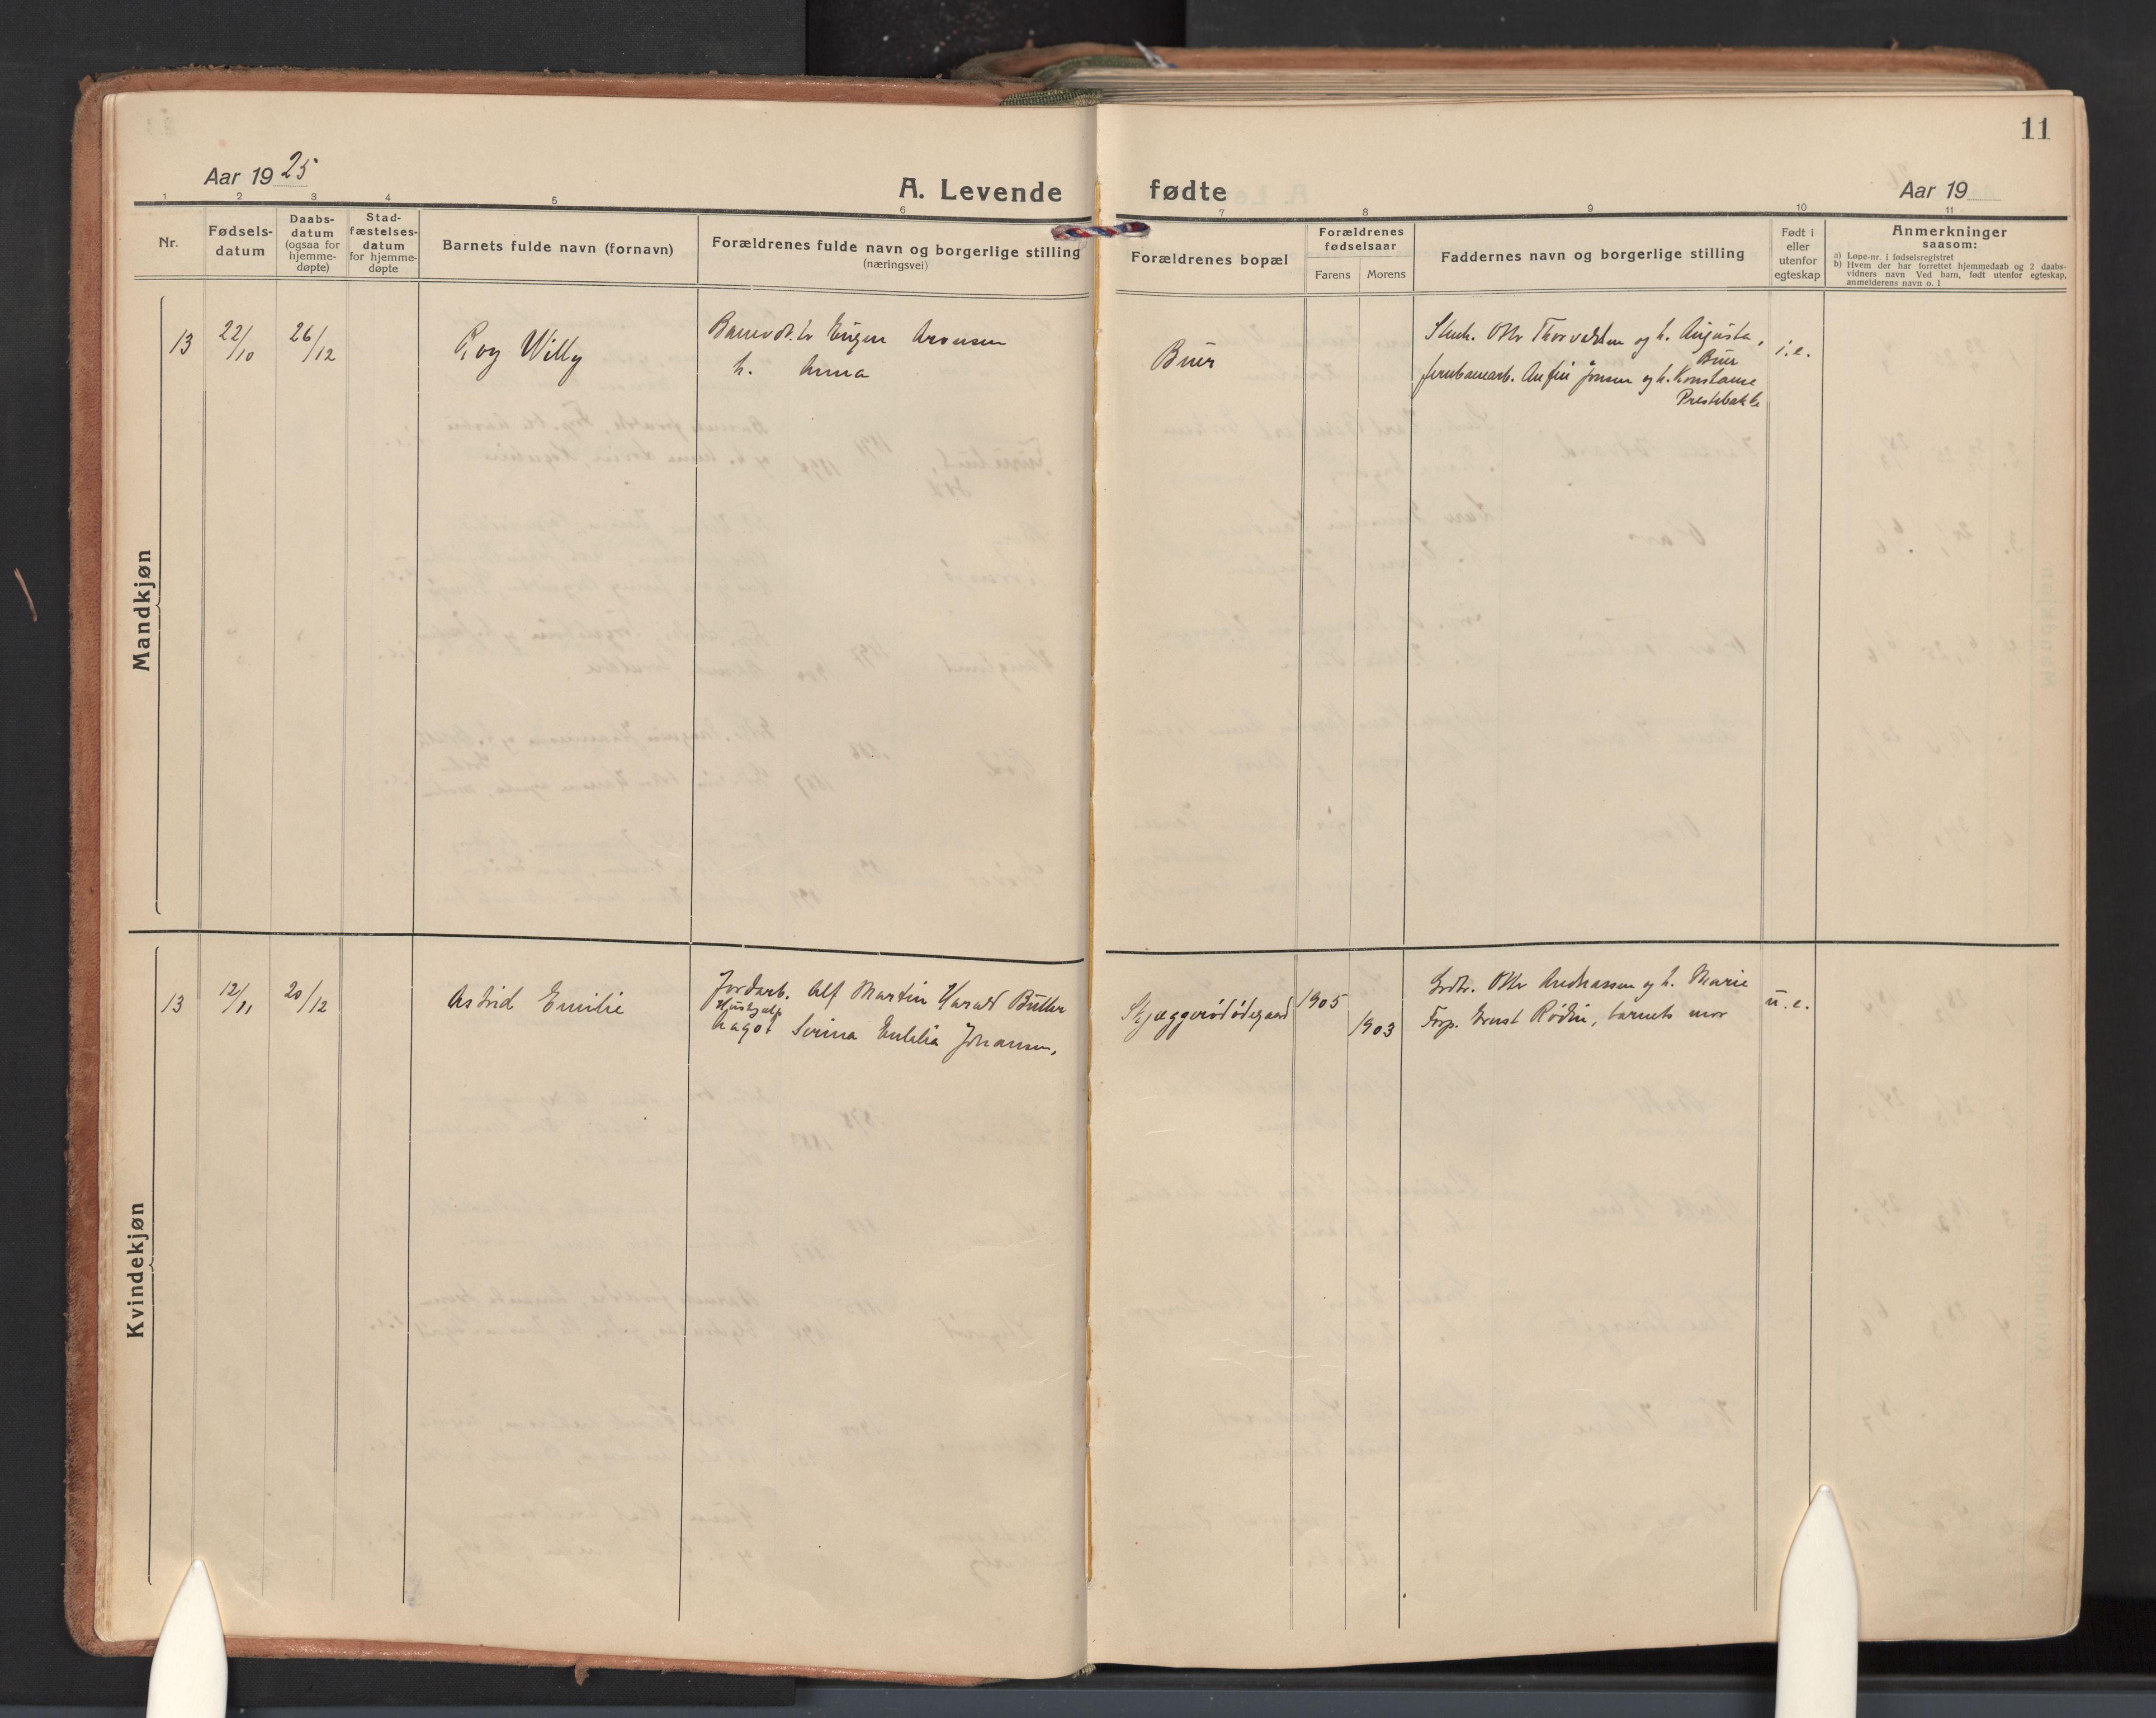 11
Aar 1925
A. Levende
fødte
Aar 19
1 2 3 4 5 6 7 8 9 10 11
Nr.
Fødsels-
datum
Daabs-
datum
(ogsaa for
hjemme-
døpte)
Stad-
fæstelses-
datum
for hjemme-
døpte
Barnets fulde navn (fornavn)
Forældrenes fulde navn og borgerlige stilling
(næringsvei)
Forældrenes bopæl
Forældrenes
fødselsaar
Farens
Morens
Faddernes navn og borgerlige stilling
Født i
eller
utenfor
egteskap
Anmerkninger
saasom:
a) Løpe-nr. i fødselsregistret
b) Hvem der har forrettet hjemmedaab og 2 daabs-
vidners navn Ved barn, født utenfor egteskap,
anmelderens navn o. l
Mandkjøn
13
22/10
26/12
Roy Willy
Eugen Aronsen
h. Anna
Buer
Stenh. Ottr Thorvaldsen og h. Augusta,
Buer
jernbanearb. Anfin Jonsen og h. Konstanse
Prestebakke
i. e.
Kvindekjøn
13
12/11
20/12
Astrid Emilie
Jordarb. Alf Martin Harald Butler
Hushjælp
Serina Emilia Johansen,
Skjæggerødødegaard
1905
1903
Grdbr. Ottr Andreassen og h. Marie
Forp. Ernst Rødin, barnets mor
u. e.